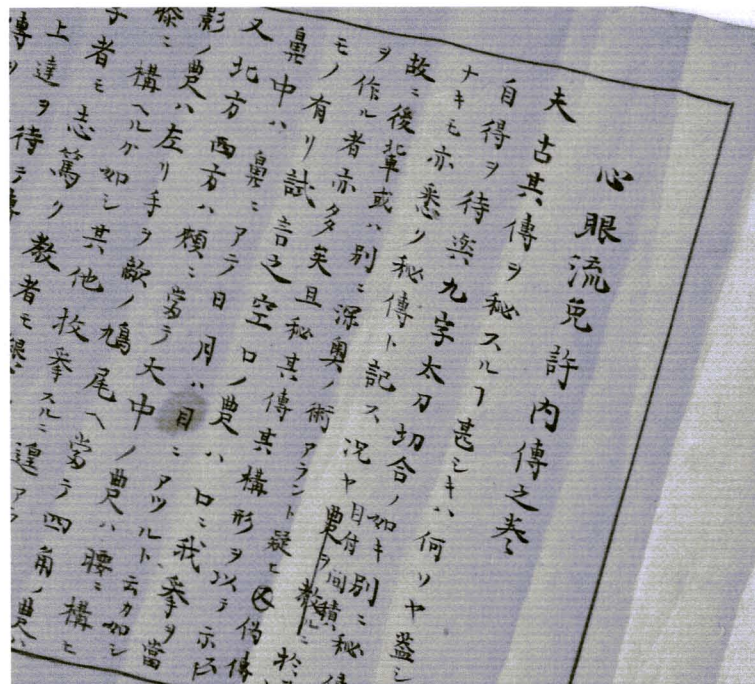 心眼流免許内傳之巻
夫古其傳ヲ秘スルヿ甚シキハ何リヤ蓋シ
自得ヲ待奥九字太刀切合ノ如キ別ニ秘傳
ナキモ亦悉リ秘傳ト記ス况ヤ目付間積
故ニ後輩或ハ別ニ深奥ノ術アラント疑ヒ又偽傳
ヲ作ル者亦多矣且秘其傳其構形ヲ以テ示
モノ有リ試言之空口ノ農ハ口ニ我拳ヲ當
鼻中ハ鼻ニアテ日月ハ目ニアツルト云カ如シ
又北方西方ハ頬ニ當テ大中ノ農ハ腰ニ構ヒ
影ノ農ハ左リ手ヲ敵ノ鳩尾ヘ當テ四角ノ農ハ
膝ニ構ヘルカ如シ其他枚挙スルニ遑アラ
者モ志篤リ教者モ
上達ヲ待テ